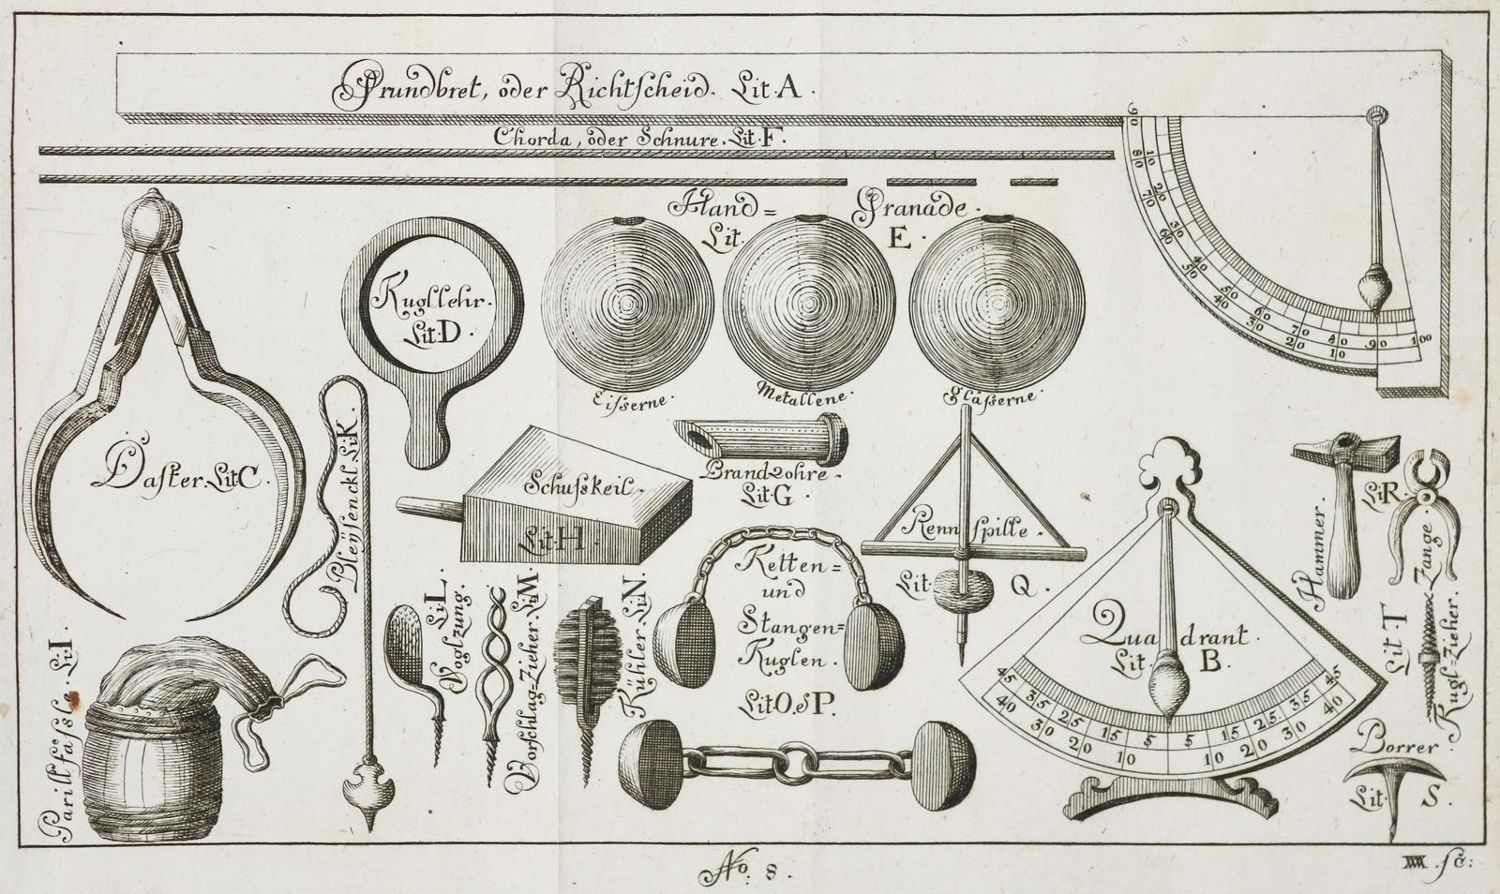 Grundbret, oder Richtscheid. Lit. A.
Chorda, oder Schnure. Lit. F.
90
80 10
70 20
60 30
50 40
40 50
30 60
20 70
10 80
90
100
Hand= Granade.
Lit. E.
Eisserne.
Metallene.
glässerne.
Kugllehr.
Lit. D.
Daster. Lit. C.
Bleÿsenckl. Lit. K.
Schusskeil.
Lit. H.
Brandrohre.
Lit. G.
Rennspille.
Lit. Q.
Ketten=
und
Stangen=
Kuglen.
Lit. O. & P.
Quadrant.
Lit. B.
45 35 25 15 5 5 15 25 35 45
40 30 20 10 10 20 30 40
Hammer.
Lit. R.
Zange.
Lit. T
Kugl=Zieher.
Borrer.
Lit. S.
Lit. L.
Voglzung.
Vorschlag=Zieher. Lit. M.
Kühler. Lit. N.
Parillfässle. Lit. I.
No. 8.
sc: